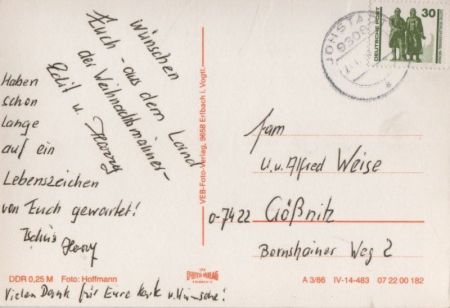 wünschen
Euch - aus dem Land
der Weihnachtsmänner -
Edit u. Harry
Haben
schon
lange
auf ein
Lebenszeichen
von Euch gewartet!
Tschüs Harry
Vielen Dank für Eure Karte u. Wünsche!
DDR 0,25 M Foto: Hoffmann
VEB-Foto-Verlag, 9658 Erlbach i. Vogtl.
FOTO VERLAG
ERLBACH
A 3/86 IV-14-483 07 22 00 182
JOHSTADT
DEUTSCHE POST
30
Fam
u. u. Alfred Weise
o-7422 Gößnitz
Bornshainer Weg 2